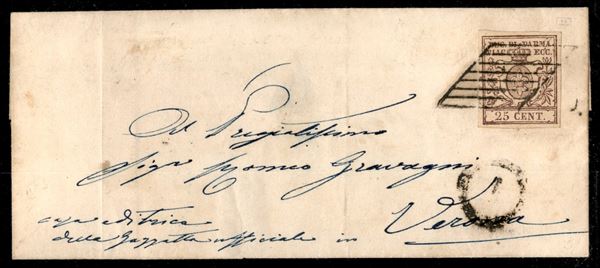 DUC. DI PARMA
PIAC. ECC.
25 CENT.
Al Pregiatissimo
Sigr Romeo Gravagni
casa editrice
della Gazzetta ufficiale in Verona